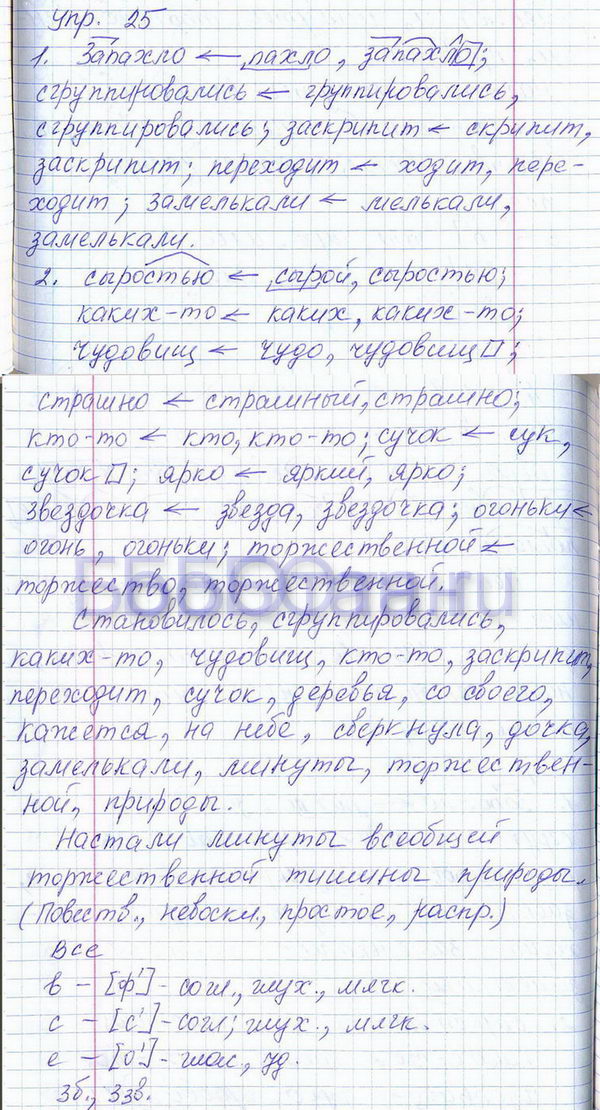 Упр. 25
1. Запахло ← пахло, запахло;
сгруппировались ← группировались,
сгруппировались; заскрипит ← скрипит,
заскрипит; переходит ← ходит, пере-
ходит; замелькали ← мелькали,
замелькали.
2. сыростью ← сырой, сыростью;
каких-то ← каких, каких-то;
чудовищ ← чудо, чудовищ□;
страшно ← страшный, страшно;
кто-то ← кто, кто-то; сучок ← сук,
сучок□; ярко ← яркий, ярко;
звездочка ← звезда, звездочка; огоньки ←
огонь, огоньки; торжественной ←
торжество, торжественной.
Становилось, сгруппировались,
каких-то, чудовищ, кто-то, заскрипит,
переходит, сучок, деревья, со своего,
кажется, на небе, сверкнула, дочка,
замелькали, минуты, торжествен-
ной, природы.
Настали минуты всеобщей
торжественной тишины природы.
(Повеств., невоскл., простое, распр.)
Все
в – [ф'] - согл., глух., мягк.
с – [с'] - согл; глух., мягк.
е – [о'] - глас, уд.
3б., 3зв.